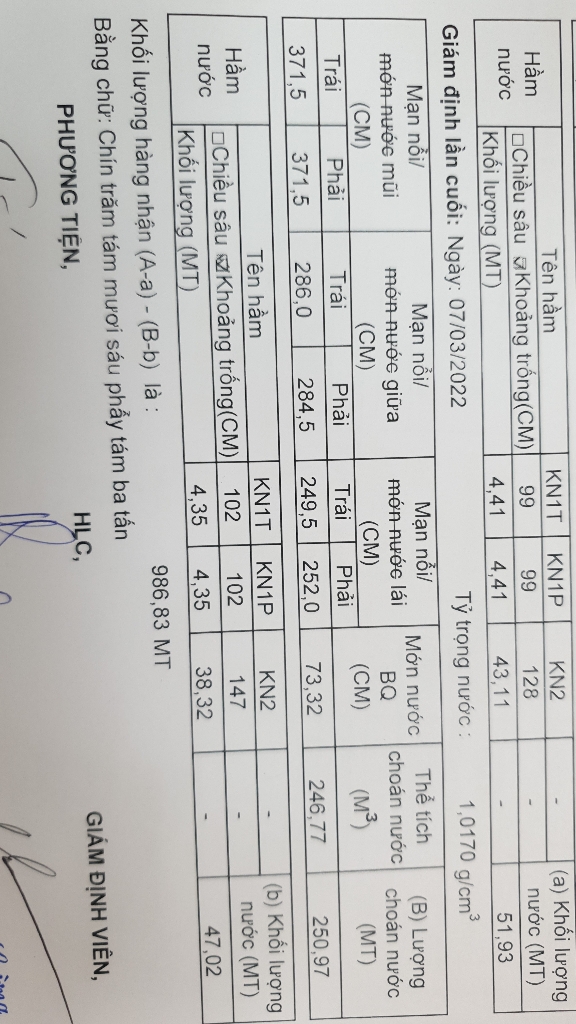 Hầm nước Tên hầm KN1T KN1P KN2 - (a) Khối lượng nước (MT)
□Chiều sâu ☑Khoảng trống(CM) 99 99 128 -
Khối lượng (MT) 4,41 4,41 43,11 - 51,93
Giám định lần cuối: Ngày: 07/03/2022 Tỷ trọng nước : 1,0170 g/cm³
Mạn nổi/ mớn nước mũi (CM) Mạn nổi/ mớn nước giữa (CM) Mạn nổi/ mớn nước lái (CM) Mớn nước BQ (CM) Thể tích choán nước (M³) (B) Lượng choán nước (MT)
Trái Phải Trái Phải Trái Phải
371,5 371,5 286,0 284,5 249,5 252,0 73,32 246,77 250,97
Hầm nước Tên hầm KN1T KN1P KN2 - (b) Khối lượng nước (MT)
□Chiều sâu ☑Khoảng trống(CM) 102 102 147 -
Khối lượng (MT) 4,35 4,35 38,32 - 47,02
Khối lượng hàng nhận (A-a) - (B-b) là : 986,83 MT
Bằng chữ: Chín trăm tám mươi sáu phẩy tám ba tấn
PHƯƠNG TIỆN, HLC, GIÁM ĐỊNH VIÊN,